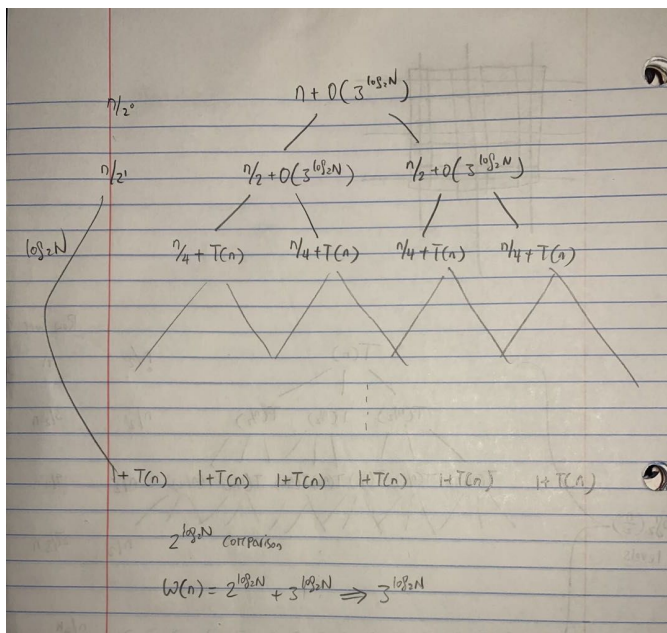 n/2⁰ n + O(3^log₂N)
n/2¹ n/2 + O(3^log₂N) n/2 + O(3^log₂N)
log₂N n/4 + T(n) n/4 + T(n) n/4 + T(n) n/4 + T(n)
1 + T(n) 1+T(n) 1+T(n) 1+T(n) 1+T(n) 1+T(n)
2^log₂N comparison
W(n) = 2^log₂N + 3^log₂N ⇒ 3^log₂N